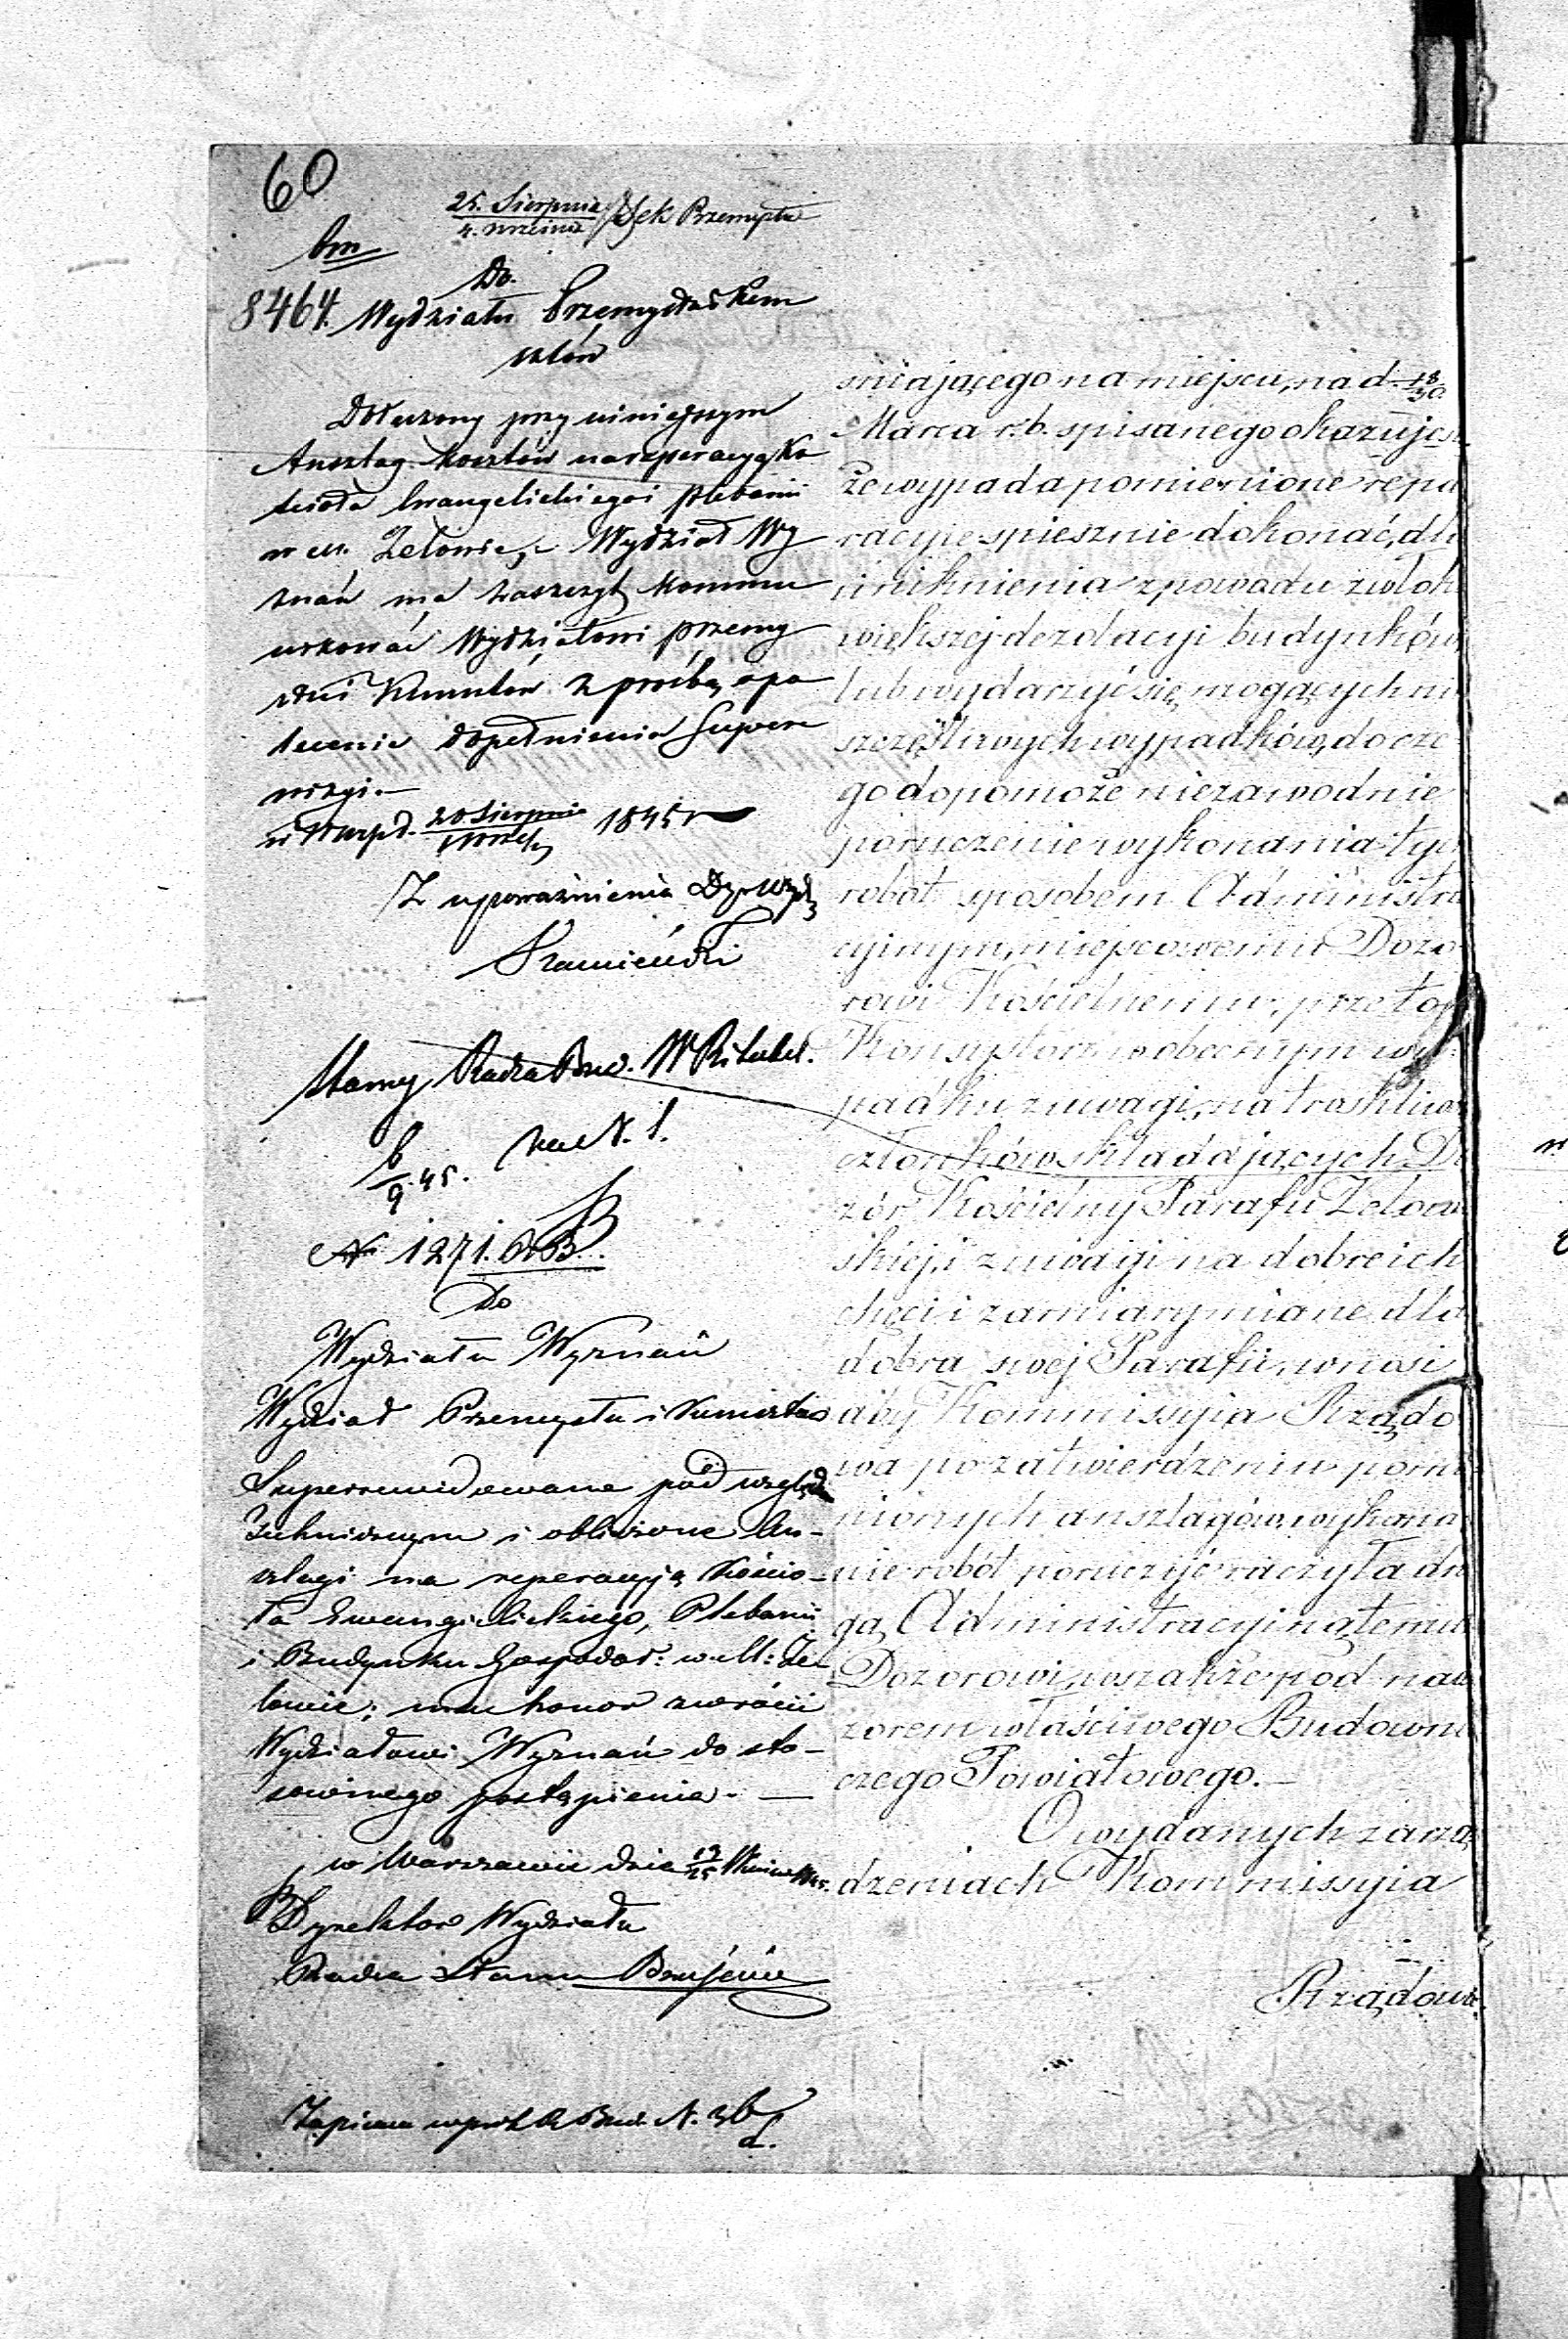 60
25. Sierpnia
4. Września
Sek Przemysłu
8464.
Do
Wydziału Przemysłu i Kun
sztów
Dołączony przy niniejszym
Anszlag kosztów na reperacyą Ko
ścioła Ewangelickiego i plebanii
w m. Zelowie, Wydział Wy
znań ma zaszczyt kommu
nikować Wydziałowi przemy
słu i Kunsztów z prośbą o po
lecenie dopełnienia Superre
wizyi.—
w Warsz. d. 20 Sierpnia 1845 r
1 Wrześ
Z upoważnienia Dyr. Wydz
Radca Bud.
6/9 45.
N 1271.
Do
Wydziału Wyznań
Wydział Przemysłu i Kunsztów
Superrewidowane pod względem
technicznym i obliczone An-
szlagi na reperacyją Kościo-
ła Ewangielickiego, Plebanii
i Budynku Gospodar: w m: Ze-
lowie; ma honor zwrócić
Wydziałowi Wyznań do sto-
sownego postąpienia. —
w Warszawie dnia
Dyrektor Wydziału
Radca Stanu
N. 36
śniającego na miejscu, na d. 18/30
Marca r. b. spisanego okazuje s
że wypada pomienione repa
racyje spiesznie dokonać, dla
uniknienia z powodu zwłok
większej dezolacyi budynków
lub wydarzyć się mogących nie
szczęśliwych wypadków, do cze
go dopomoże niezawodnie
poruczenie wykonania tych
robot sposobem Administra
cyjnym, miejscowemu Dozo
rowi Kościelnemu; przeto
Konsystorz w obecnym wy
padku z uwagi, na troskliwość
członków składających Do
zór Kościelny Parafii Zelow
skiej, i z uwagi na dobre ich
chęci i zamiary miane dla
dobra swej Parafii, wnosi
aby Kommissyja Rządo
wa po zatwierdzeniu pomie
nionych anszlagów, wykona
nie robót poruczyć raczyła dro
gą Administracyjną temu
Dozorowi, wszakże pod nad
zorem właściwego Budowni
czego Powiatowego.—
O wydanych zarzą
dzeniach Kommissyja
Rządowa